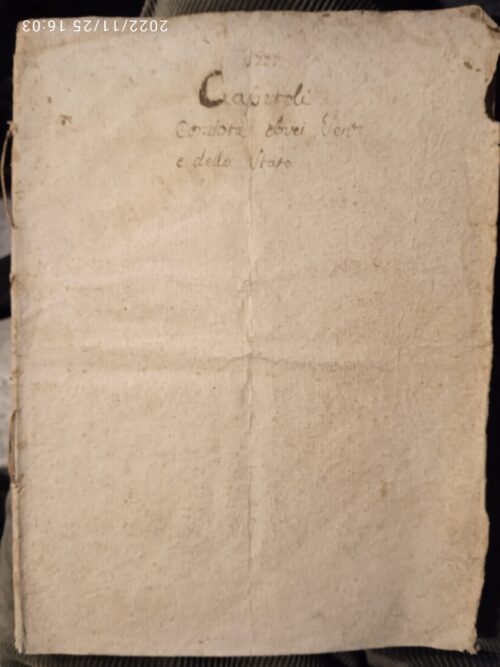 2022/11/25 16:03
1777
Capitoli
Condota ebrei Vene
e dello Stato